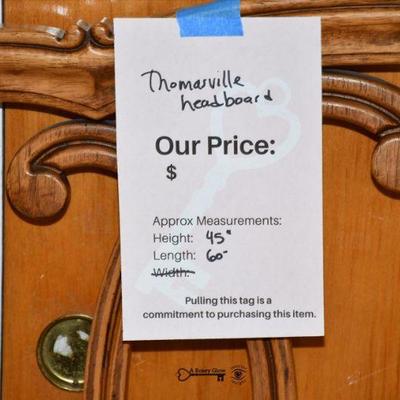 Thomasville
headboard
Our Price:
$
Approx Measurements:
Height: 45"
Length: 60"
Width:
Pulling this tag is a
commitment to purchasing this item.